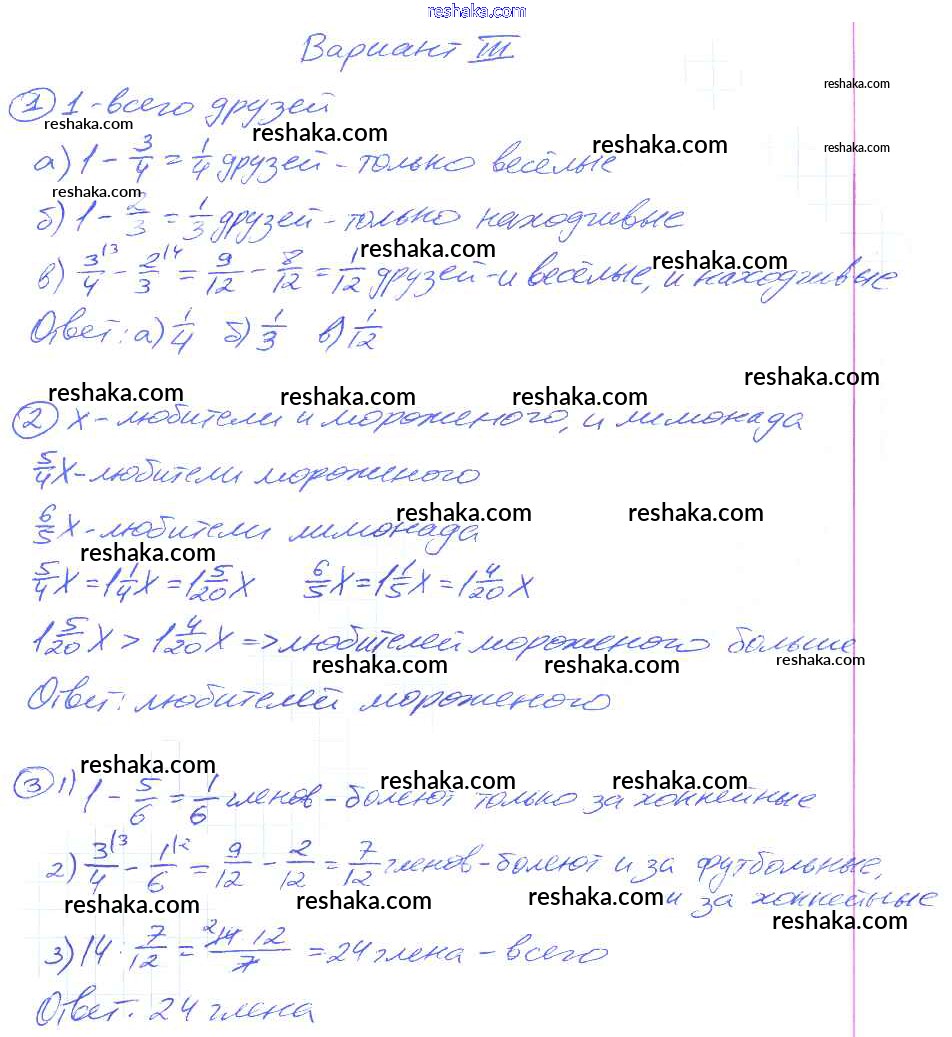 reshaka.com
Вариант III
reshaka.com
① 1 - всего друзей
reshaka.com reshaka.com reshaka.com
а) 1 - 3/4 = 1/4 друзей - только весёлые
reshaka.com
б) 1 - 2/3 = 1/3 друзей - только находчивые
reshaka.com reshaka.com
в) 3/4 |3 - 2/3 |4 = 9/12 - 8/12 = 1/12 друзей - и весёлые, и находчивые
Ответ: а) 1/4 б) 1/3 в) 1/12
reshaka.com reshaka.com reshaka.com reshaka.com
② x - любители и мороженого, и лимонада
5/4 x - любители мороженого
reshaka.com reshaka.com
6/5 x - любители лимонада
reshaka.com
5/4 x = 1 1/4 x = 1 5/20 x 6/5 x = 1 1/5 x = 1 4/20 x
1 5/20 x > 1 4/20 x => любителей мороженого больше
reshaka.com reshaka.com reshaka.com
Ответ: любителей мороженого
reshaka.com reshaka.com reshaka.com
③ 1) 1 - 5/6 = 1/6 членов - болеют только за хоккейные
2) 3/4 |3 - 1/6 |2 = 9/12 - 2/12 = 7/12 членов - болеют и за футбольные,
и за хоккейные
reshaka.com reshaka.com reshaka.com reshaka.com
3) 14 : 7/12 = 2 14 · 12/7 = 24 члена - всего
Ответ: 24 члена